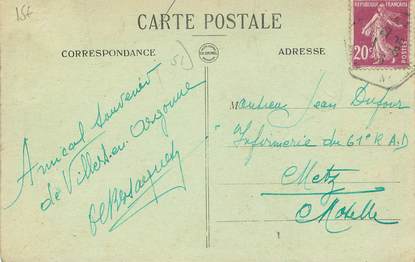 15€
CARTE POSTALE
CORRESPONDANCE
ADRESSE
REPUBLIQUE FRANÇAISE
20c
(51)
Amical souvenir
de Villers en Argonne
Monsieur Jean Dufour
Infirmerie du 61e R.A.D
Metz
Moselle